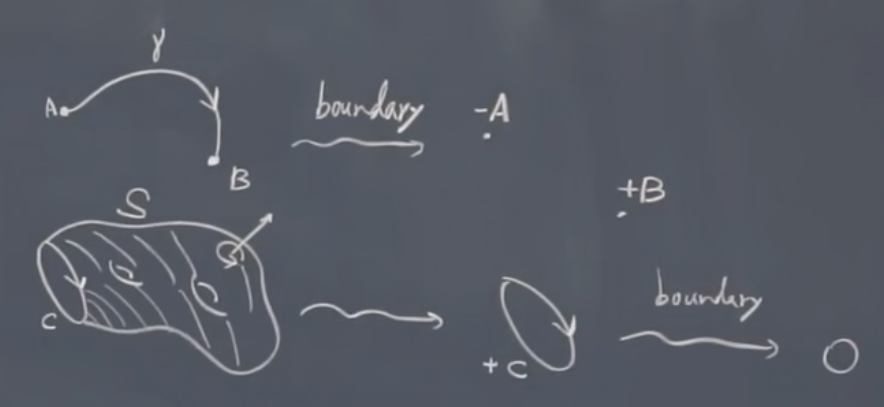 γ
A
boundary
-A
B
+B
S
C
boundary
+C
0